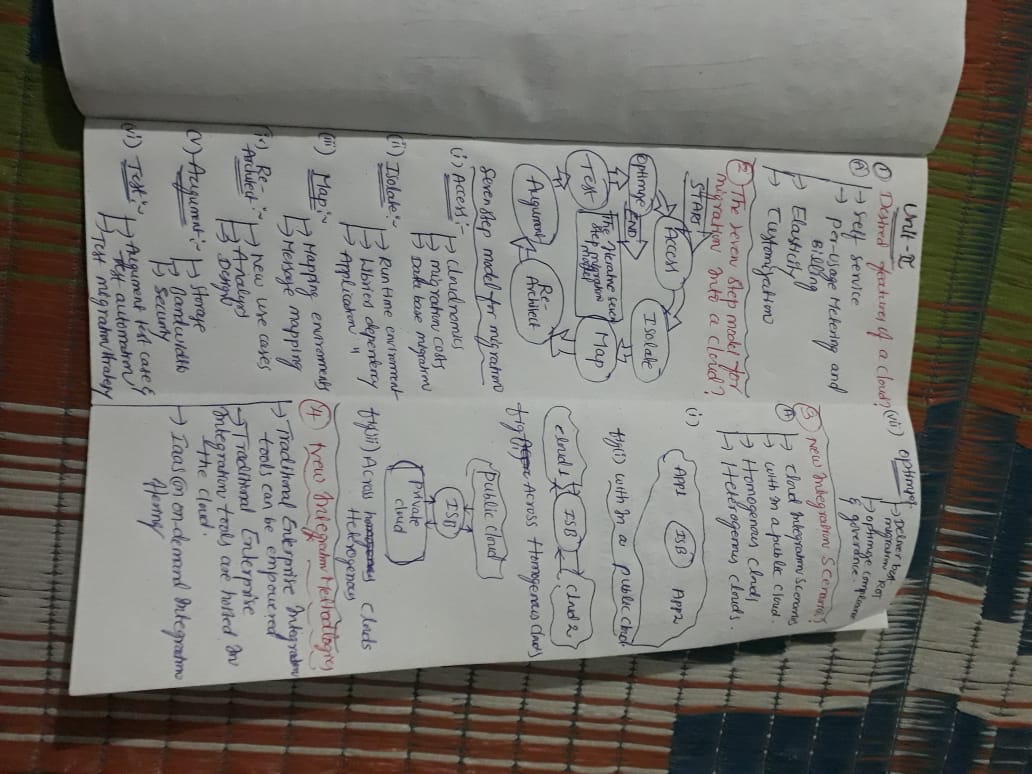 Unit-II
① Desired features of a cloud?
Ⓐ → self service
→ Per-usage Metering and
Billing
→ Elasticity
→ Customization
② The seven step model for
migration into a cloud?
START
Access
Isolate
Map
Re-
Architect
Augument
Test
Optimize
END
The Iterative seven
step migration
model
Seven step model for migration
(i) Access :-
→ cloudnomics
→ migration costs
→ Data base migration
(ii) Isolate :-
→ Runtime environment
→ dependency
→ Application "
(iii) Map :-
→ Mapping environments
→ Message mapping
(iv) Re-
Architect :-
→ New use cases
→ Analysis
→ Design
(v) Augument :-
→ Storage
→ Bandwidth
→ Security
(vi) Test :-
→ Augument test case &
Test automation
→ Test migration strategy
(vii) optimize
→ Deliver best
migration ROI
→ optimize compliance
& goverance.
③ New Integration Scenarios?
Ⓐ → Cloud Integration Scenarios
→ with in a public cloud.
→ Homogenous clouds
→ Heterogenous clouds.
(i)
APP1 ISB APP2
fig(i) with in a public cloud
cloud 1 ISB cloud 2
fig(ii) Across Homogenous clouds
Public cloud
ISB
Private
cloud
fig(iii) Across homogenous clouds
Heterogenous
④ New Integration Methodlogies
→ Traditional Enterprise Integration
tools can be empowered
→ Traditional Enterprise
Integration tools are hosted in
the cloud.
→ Iaas (or) on-demand Integration